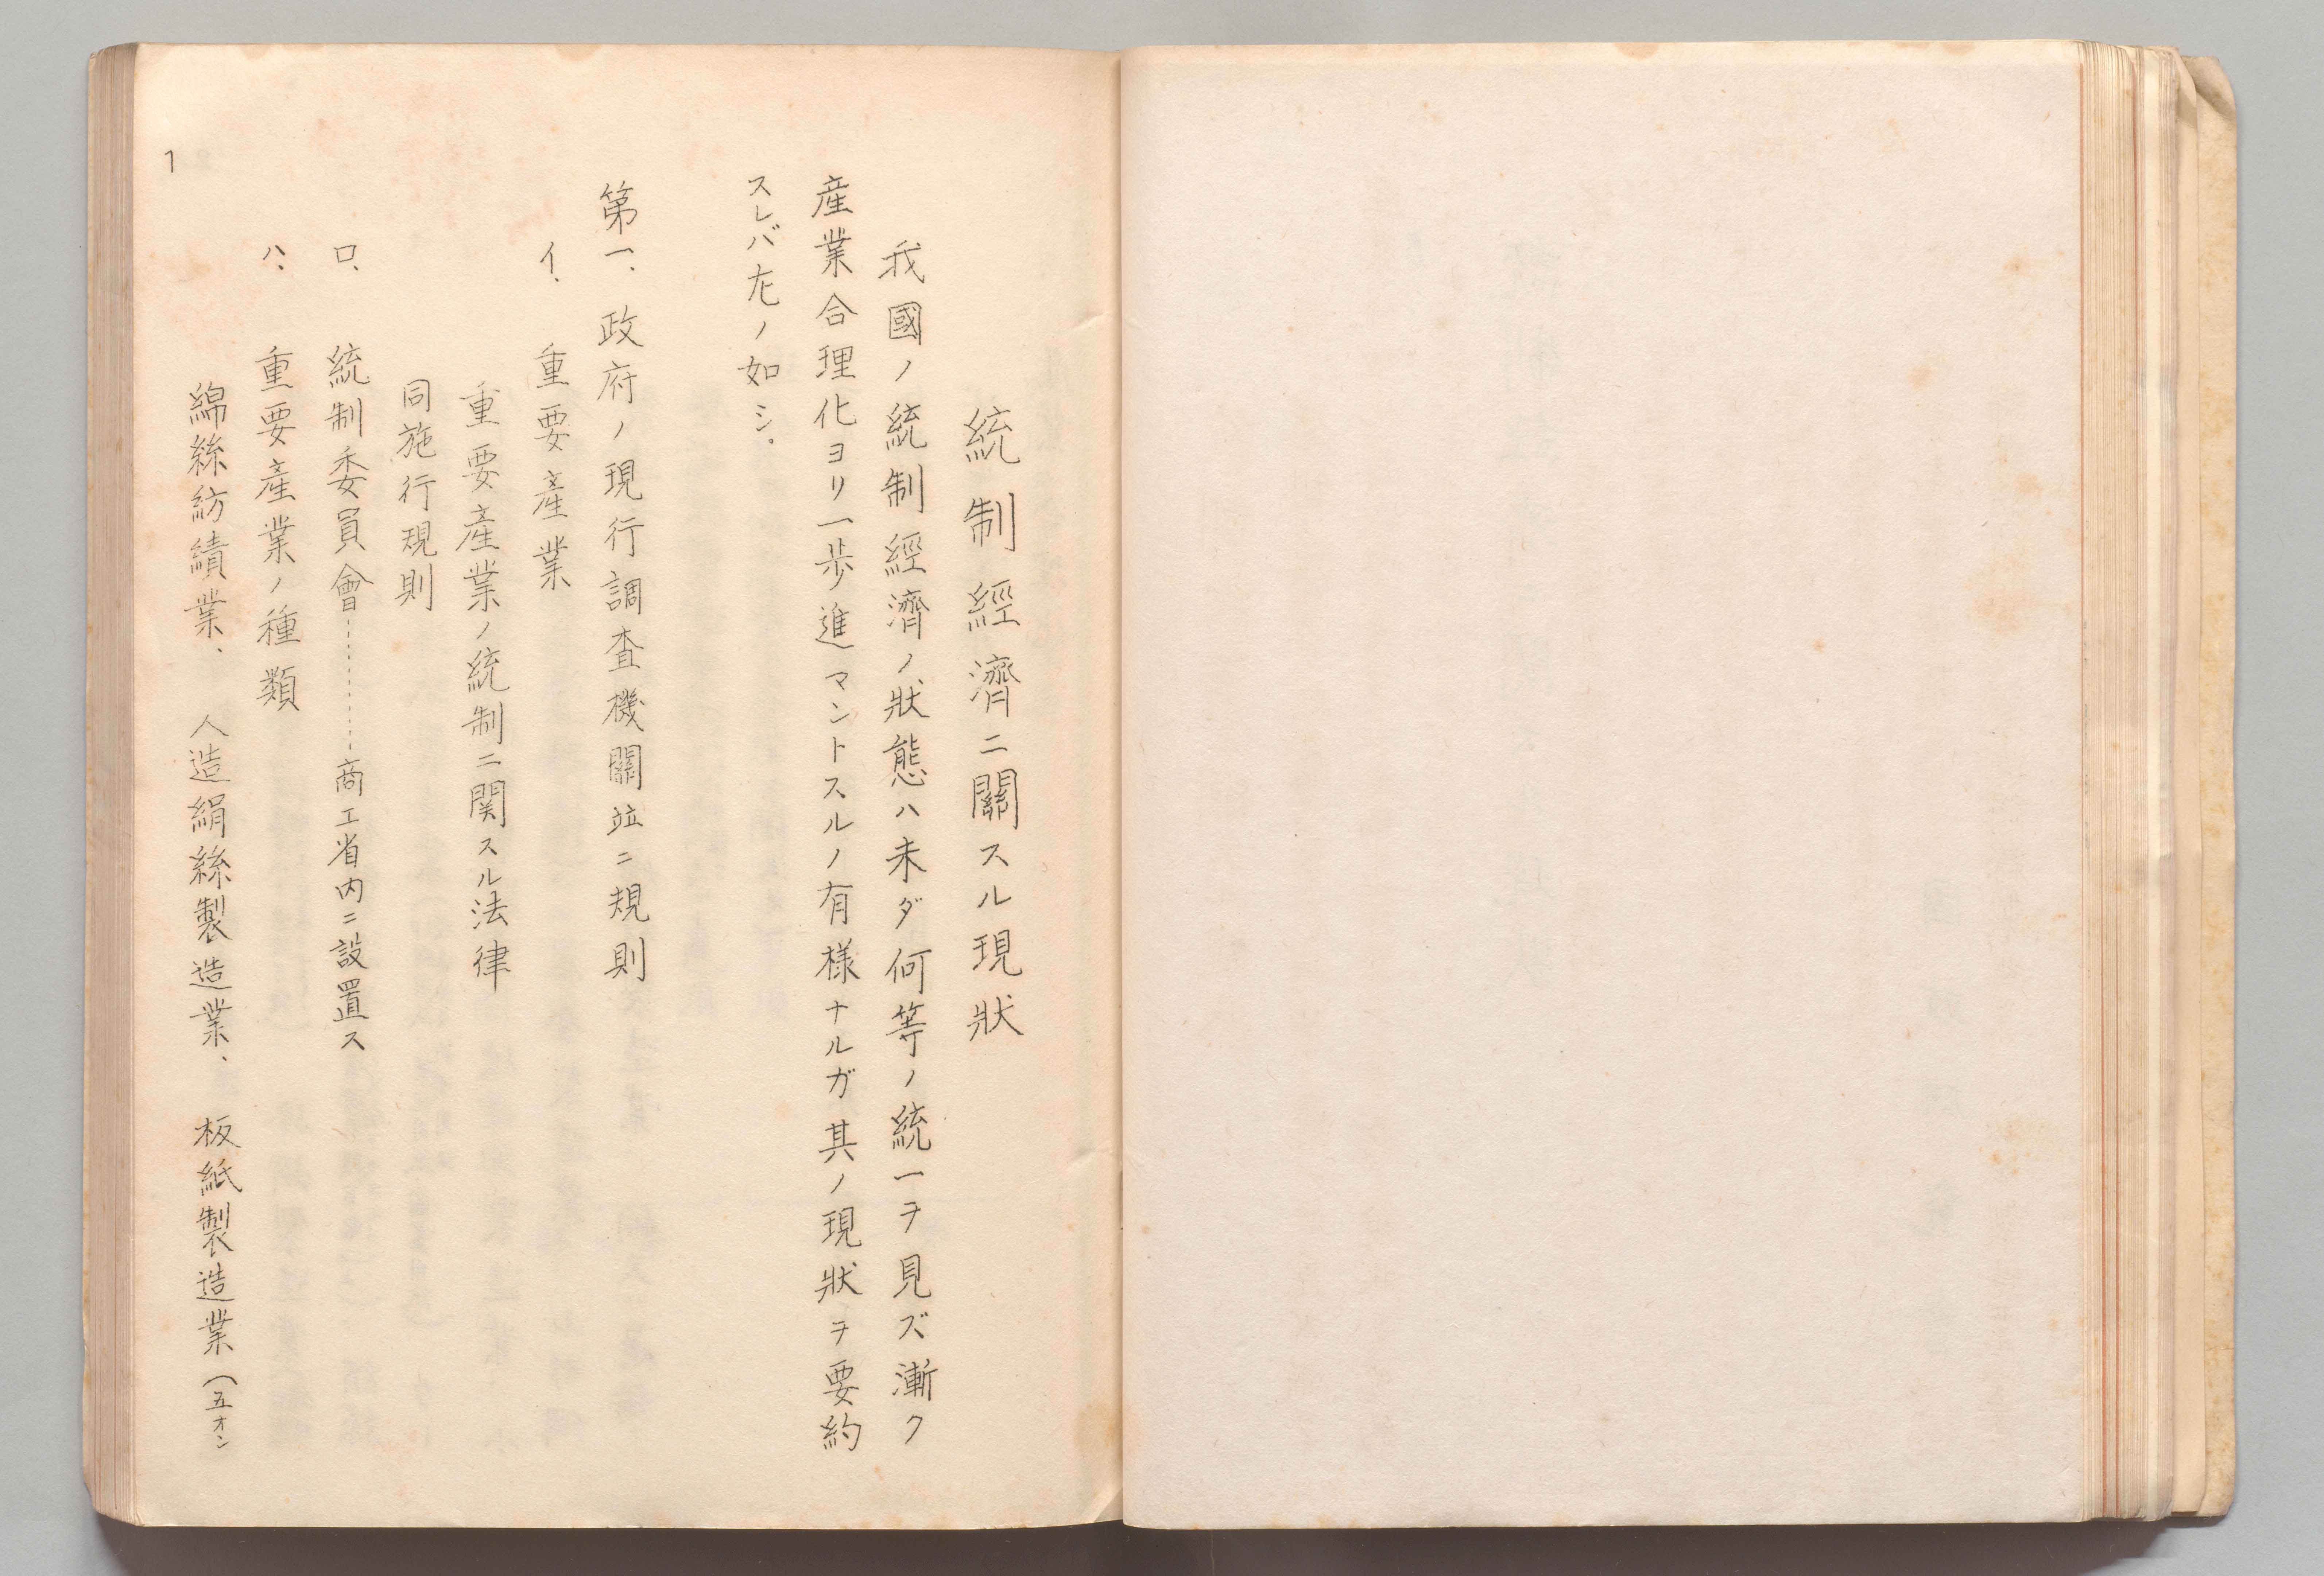 統制經濟ニ關スル現狀
我國ノ統制經濟ノ狀態ハ未ダ何等ノ統一ヲ見ズ漸ク
産業合理化ヨリ一歩進マントスルノ有様ナルガ其ノ現狀ヲ要約
スレバ左ノ如シ。
第一、政府ノ現行調査機關竝ニ規則
イ、重要産業
重要産業ノ統制ニ関スル法律
同施行規則
ロ、統制委員會…………商工省内ニ設置ス
ハ、重要産業ノ種類
綿絲紡績業、人造絹絲製造業、板紙製造業(五オン
1